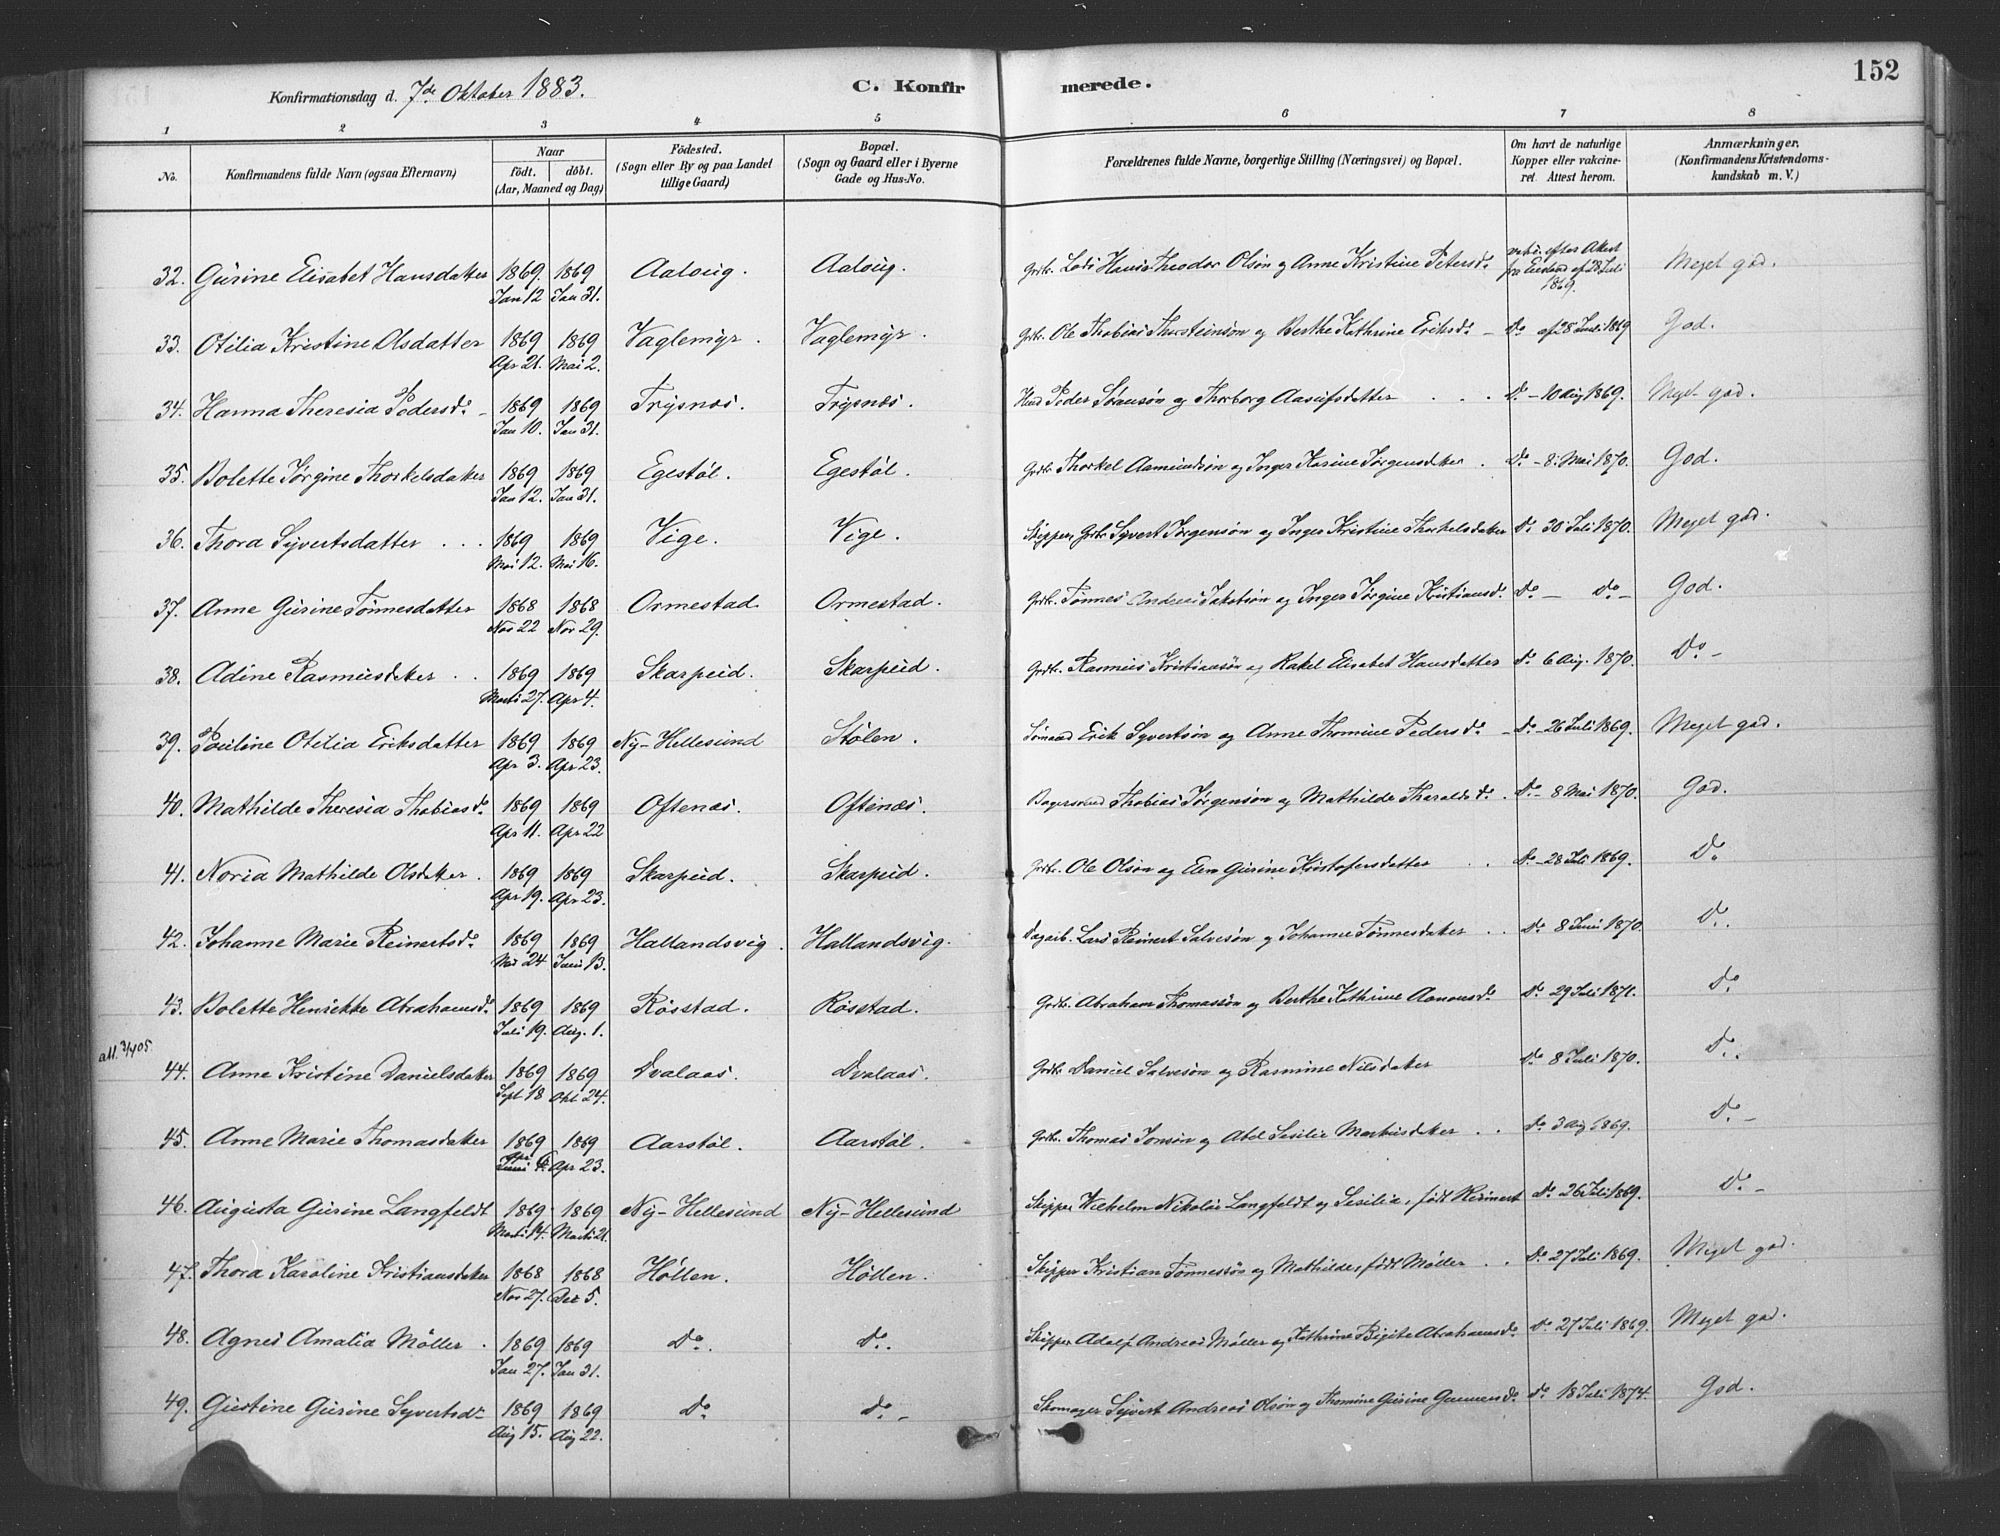 152
Konfirmationsdag d. 7de Oktober 1883.
C. Konfirmerede.
1 2 3 4 5 6 7 8
No. Konfirmandens fulde Navn (ogsaa Efternavn) Naar födt. döbt. (Aar, Maaned og Dag) Födested. (Sogn eller By og paa Landet tillige Gaard) Bopæl. (Sogn og Gaard eller i Byerne Gade og Hus-No. Forældrenes fulde Navne, borgerlige Stilling (Næringsvei) og Bopæl. Om havt de naturlige Kopper eller vakcineret. Attest herom. Anmærkninger. (Konfirmandens Kristendomskundskab m. V.)
32. Gurine Elisabet Hansdatter 1869. Jan 12 1869 Jan 31. Aaloug. Aaloug. Lods Hans Theodor Olsøn og Anne Kristine Petersd. efter Attest af 28 Juli 1869. Meget god.
33. Otilia Kristine Olsdatter 1869 Apr 21. 1869 Mai 2. Vaglemyr. Vaglemyr. Grdbr. Ole Thobias Thorsteinsøn og Berthe Kathrine Eriksd. Do af 28 Juli 1869 God.
34. Hanna Theresia Pedersd. 1869 Jan 10. 1869 Jan 31. Trysnæs. Trysnæs. Peder Søvensøn og Thorborg Aasulfsdatter Do - 10 Aug 1869. Meget god.
35. Bolette Jørgine Thorkelsdatter 1869 Jan 12. 1869 Jan 31. Egestøl. Egestøl. Grdbr. Thorkel Aamundsøn og Inger Karine Jørgensdatter. Do - 8. Mai 1870. God.
36. Thora Syvertsdatter 1869 Mai 12. 1869 Mai 16. Vige. Vige. Skipper, Grdbr. Syvert Jørgensøn og Inger Kristine Thorkelsdatter Do 30 Juli 1870. Meget god.
37. Anne Gurine Tønnesdatter 1868 Nov 22 1868 Nov 29. Ormestad Ormestad. Grdbr. Tønnes Andreas Jakobsøn og Inger Jørgine Kristiansd. Do - Do - God.
38. Adine Rasmusdatter 1869 Marts 27. 1869 Apr 4. Skarpeid. Skarpeid. Grdbr. Rasmus Kristiansøn og Rakel Elisabet Hansdatter Do 6 Aug. 1870. Do -
39. Pauline Otilia Eriksdatter 1869 Apr 3. 1869 Apr 23. Ny-Hellesund Stølen. Sømand Erik Syvertsøn og Anne Thomine Pedersd. - Do - 26 Juli 1869. Meget god.
40. Mathilde Theresia Thobiasd. 1869 Apr 11. 1869 Apr 22 Oftenæs. Oftenæs. Thobias Jørgensøn og Mathilde Tharaldsd. Do - 8 Mai 1870. God.
41. Noria Mathilde Olsdatter. 1869 Apr 19. 1869 Apr 23. Skarpeid. Skarpeid. Grdbr. Ole Olsøn og Elen Gurine Kristofersdatter Do - 28 Juli 1869. Do.
42. Johanne Marie Reinertsd. 1869 Mai 24 1869 Juni 13. Hallandsvig. Hallandsvig. Dagarb. Lars Reinert Salvesøn og Johanne Tønnesdatter Do 8 Juni 1870. Do.
43. Bolette Henrikke Abrahamsd. 1869 Juli 19. 1869 Aug. 1. Røsstad. Røsstad. Grdbr. Abraham Thomassøn og Berthe Kathrine Aanonsd. Do 29 Juli 1871. Do.
att. 3/4 05.
44. Anne Kristine Danielsdatter 1869 Sept 18 1869 Okt 24. Dvalaas. Dvalaas. Grdbr. Daniel Salvesøn og Rasmine Nilsdatter Do 8 Juli 1870. Do.
45. Anne Marie Thomasdatter 1869 Apr 1869 Apr 23. Aarstøl. Aarstøl. Grdbr. Thomas Jonsøn og Abel Sesilie Markusdatter Do 3 Aug 1869. Do -
46. Augusta Gurine Langfeldt 1869 Marts 14. 1869 Marts 21. Ny-Hellesund Ny-Hellesund Skipper Wilhelm Nikolai Langfeldt og Sesilia, født Reinert Do 26 Juli 1869. Do -
47. Thora Karoline Kristiansdatter 1868 Nov 27. 1868 Dec 5. Høllen. Høllen. Skipper Kristian Tønnessøn og Mathilde, født Møller Do 27 Juli 1869. Meget god.
48. Agnes Amalia Møller. 1869 Jan 27. 1869 Jan 31. Do. Do. Skipper Adolf Andreas Møller og Kathrine Birgite Abrahamsd. Do 27 Juli 1869. Meget god.
49. Gustine Gurine Syvertsdr 1869 Aug 15. 1869 Aug 22. Do Do - Skomager Syvert Andreas Olsøn og Thomine Gurine Gunnersd. Do 18 Juli 1874. God.